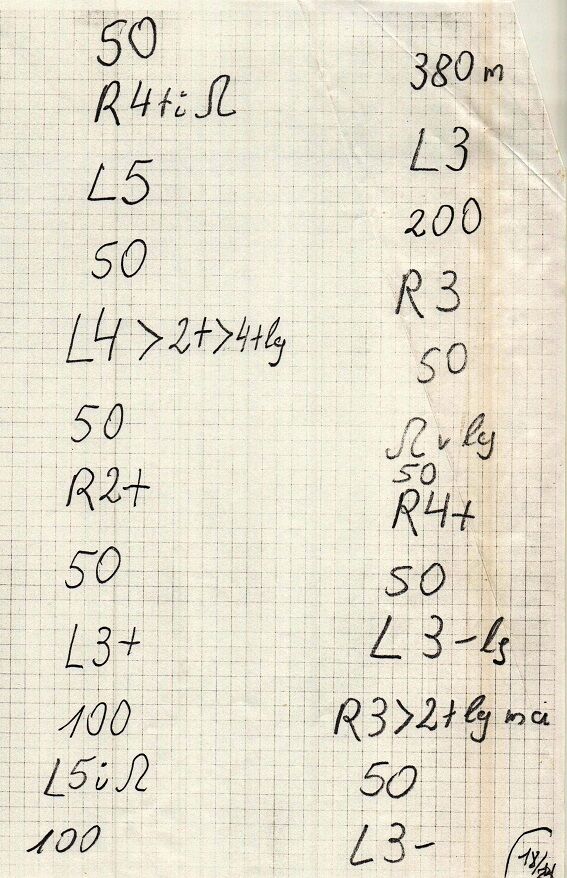 50
R4+i Ω
L5
50
L4 > 2+ > 4+lg
50
R2+
50
L3+
100
L5 i Ω
100
380 m
L3
200
R3
50
Ω v lg
50
R4+
50
L 3 - lg
R3>2+lg
50
L3-